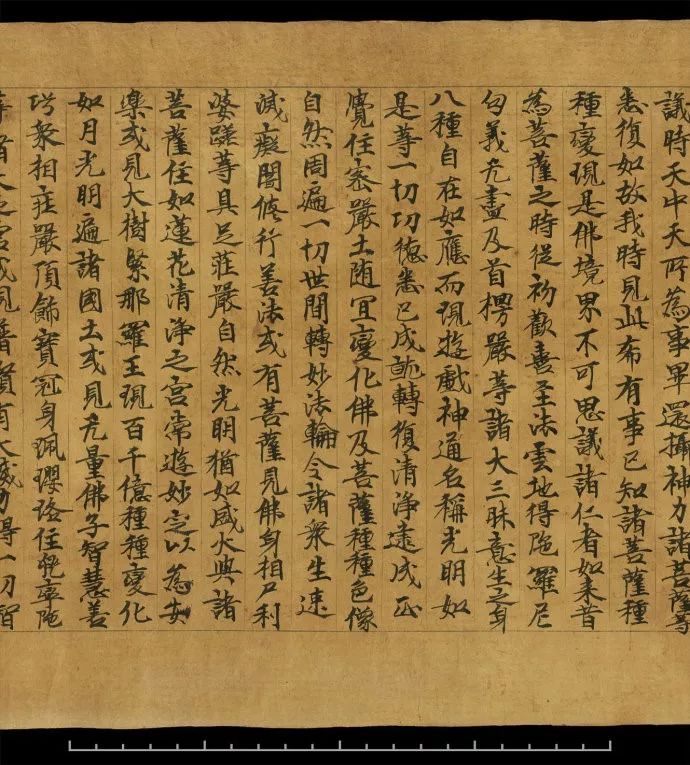 議時天中天所為事畢還攝神力諸菩薩等
悉復如故我時見此希有事已知諸菩薩種
種變現是佛境界不可思議諸仁者如来昔
為菩薩之時從初歡喜至法雲地得陁羅尼
句義无盡及首楞嚴等諸大三昧意生之身
八種自在如應而現遊戲神通名稱光明如
是等一切功德悉已成就轉復清淨遠成正
覺住密嚴土随宜變化佛及菩薩種種色像
自然周遍一切世間轉妙法輪令諸衆生速
滅癡闇修行善法或有菩薩見佛身相尸利
婆蹉等具足莊嚴自然光明猶如盛火與諸
菩薩住如蓮花清淨之宮常遊妙定以為安
樂或見大樹緊那羅王現百千億種種變化
如月光明遍諸國土或見无量佛子智慧善
巧衆相莊嚴頂飾寶冠身珮瓔珞住兜率陁
諸天之宮或見普賢有大威力得一切智